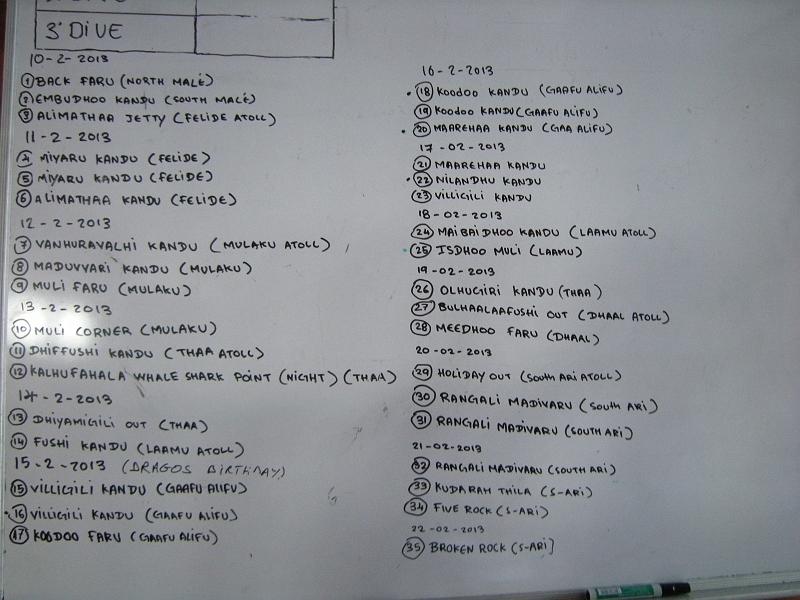 3° DIVE
10-2-2013
1 BACK FARU (NORTH MALÉ)
2 EMBUDHOO KANDU (SOUTH MALÉ)
3 ALIMATHAA JETTY (FELIDE ATOLL)
11-2-2013
4 MIYARU KANDU (FELIDE)
5 MIYARU KANDU (FELIDE)
6 ALIMATHAA KANDU (FELIDE)
12-2-2013
7 VANHURAVALHI KANDU (MULAKU ATOLL)
8 MADUVVARI KANDU (MULAKU)
9 MULI FARU (MULAKU)
13-2-2013
10 MULI CORNER (MULAKU)
11 DHIFFUSHI KANDU (THAA ATOLL)
12 KALHUFAHALA WHALE SHARK POINT (NIGHT) (THAA)
14-2-2013
13 DHIYAMIGILI OUT (THAA)
14 FUSHI KANDU (LAAMU ATOLL)
15-2-2013 (DRAGOS BIRTHDAY)
15 VILLIGILI KANDU (GAAFU ALIFU)
16 VILLIGILI KANDU (GAAFU ALIFU)
17 KOODOO FARU (GAAFU ALIFU)
16-2-2013
18 KOODOO KANDU (GAAFU ALIFU)
19 KOODOO KANDU (GAAFU ALIFU)
20 MAAREHAA KANDU (GAA ALIFU)
17-02-2013
21 MAAREHAA KANDU
22 NILANDHU KANDU
23 VILLIGILI KANDU
18-02-2013
24 MAIBAIDHOO KANDU (LAAMU ATOLL)
25 ISDHOO MULI (LAAMU)
19-02-2013
26 OLHUGIRI KANDU (THAA)
27 BULHAALAAFUSHI OUT (DHAAL ATOLL)
28 MEEDHOO FARU (DHAAL)
20-02-2013
29 HOLIDAY OUT (SOUTH ARI ATOLL)
30 RANGALI MADIVARU (SOUTH ARI)
31 RANGALI MADIVARU (SOUTH ARI)
21-02-2013
32 RANGALI MADIVARU (SOUTH ARI)
33 KUDARAH THILA (S-ARI)
34 FIVE ROCK (S-ARI)
22-02-2013
35 BROKEN ROCK (S-ARI]